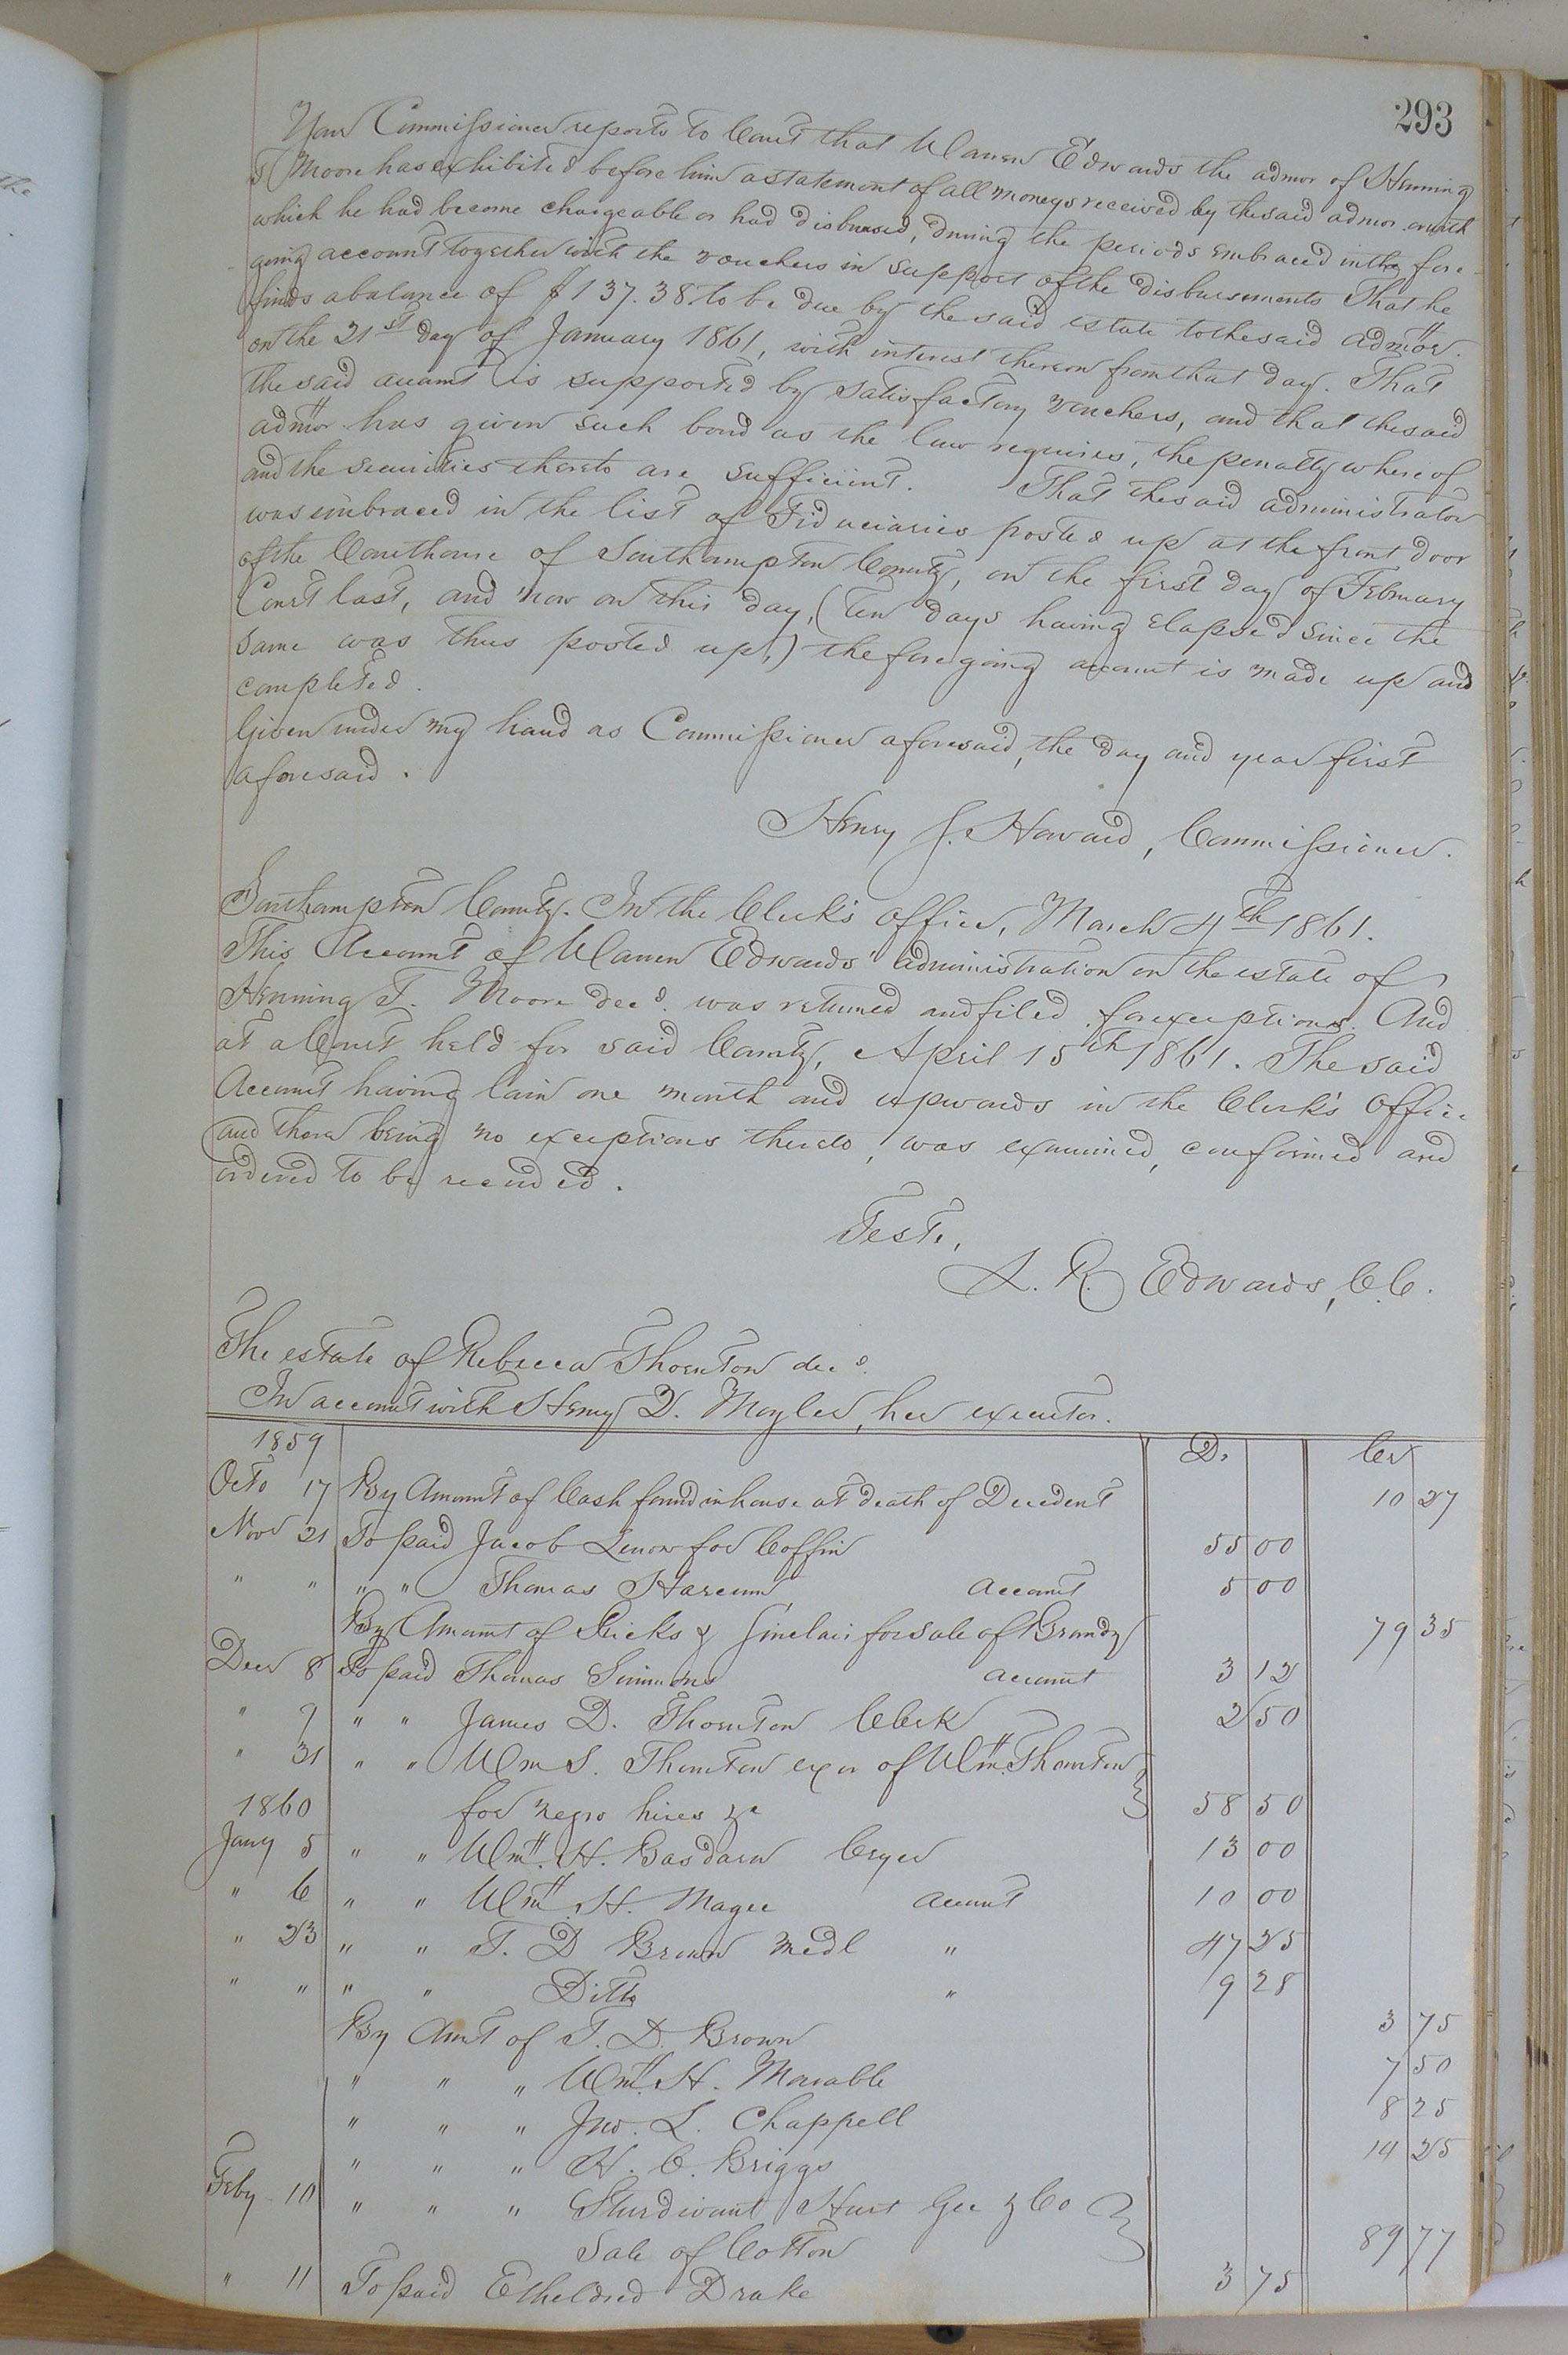 293
Your Commissioner reports to Court that Warren Edwards the admor of Henning
T Moore has exhibited before him a statement of all moneys received by the said admor. or with
which he had become chargeable or had disbursed, during the periods embraced in the fore-
going account together with the vouchers in support of the disbursements That he
finds a balance of $137.38 to be due by the said estate to the said admor.
on the 21st day of January 1861, with interest thereon from that day. That
the said account is supported by satisfactory vouchers, and that the said
admor has given such bond as the law requires, the penalty whereof
and the securities thereto are sufficient. That the said administrator
was embraced in the list of Fiduciaries posted up at the front door
of the Courthouse of Southampton County, on the first day of February
Court last, and now on this day, (ten days having elapsed since the
same was thus posted up,) the foregoing account is made up and
completed.
Given under my hand as Commissioner aforesaid, the day and year first
aforesaid.
Henry J. Howard, Commissioner.
Southampton County. In the Clerk's office, March 4th 1861.
This Account of Warren Edwards' administration on the estate of
Henning T. Moore decd. was returned and filed for exceptions. And
at a Court held for said County, April 15th 1861. The said
Account having lain one month and upwards in the Clerk's Office
and there being no exceptions thereto, was examined, confirmed and
ordered to be recorded.
Teste,
L. R. Edwards, C.C.
The estate of Rebecca Thornton decd.
In account with Henry D. Moyler, her executor.
1859 Dr Cr
Octo 17 By Amount of Cash found in house at death of Decedent 10 27
Nov 21 To paid Jacob Lenow for Coffin 55 00
" " " " Thomas Harcum Account 5 00
By Amount of Ricks & Sinclair for sale of Brandy 79 35
Decr 8 To paid Thomas Simmons account 3 12
" 9 " " James D. Thornton Clerk 2 50
" 31 " " Wm S. Thornton exor of Wm. Thornton
1860 for negro hires &c 58 50
Jany 5 " " Wm. H. Crier 13 00
" 6 " " Wm. H. Magee account 10 00
" 23 " " T. D Brown medl " 47 25
" " " " Ditto " 9 28
By Amt of T. D. Brown 3 75
" " " Wm. H. Marable 7 50
" " " Jno. L. Chappell 8 25
" " " H. C. Briggs 14 25
Feby 10 " " " Sturdivant Hurt Gee & Co
Sale of Cotton 89 77
" 11 To paid Etheldred Drake 3 75